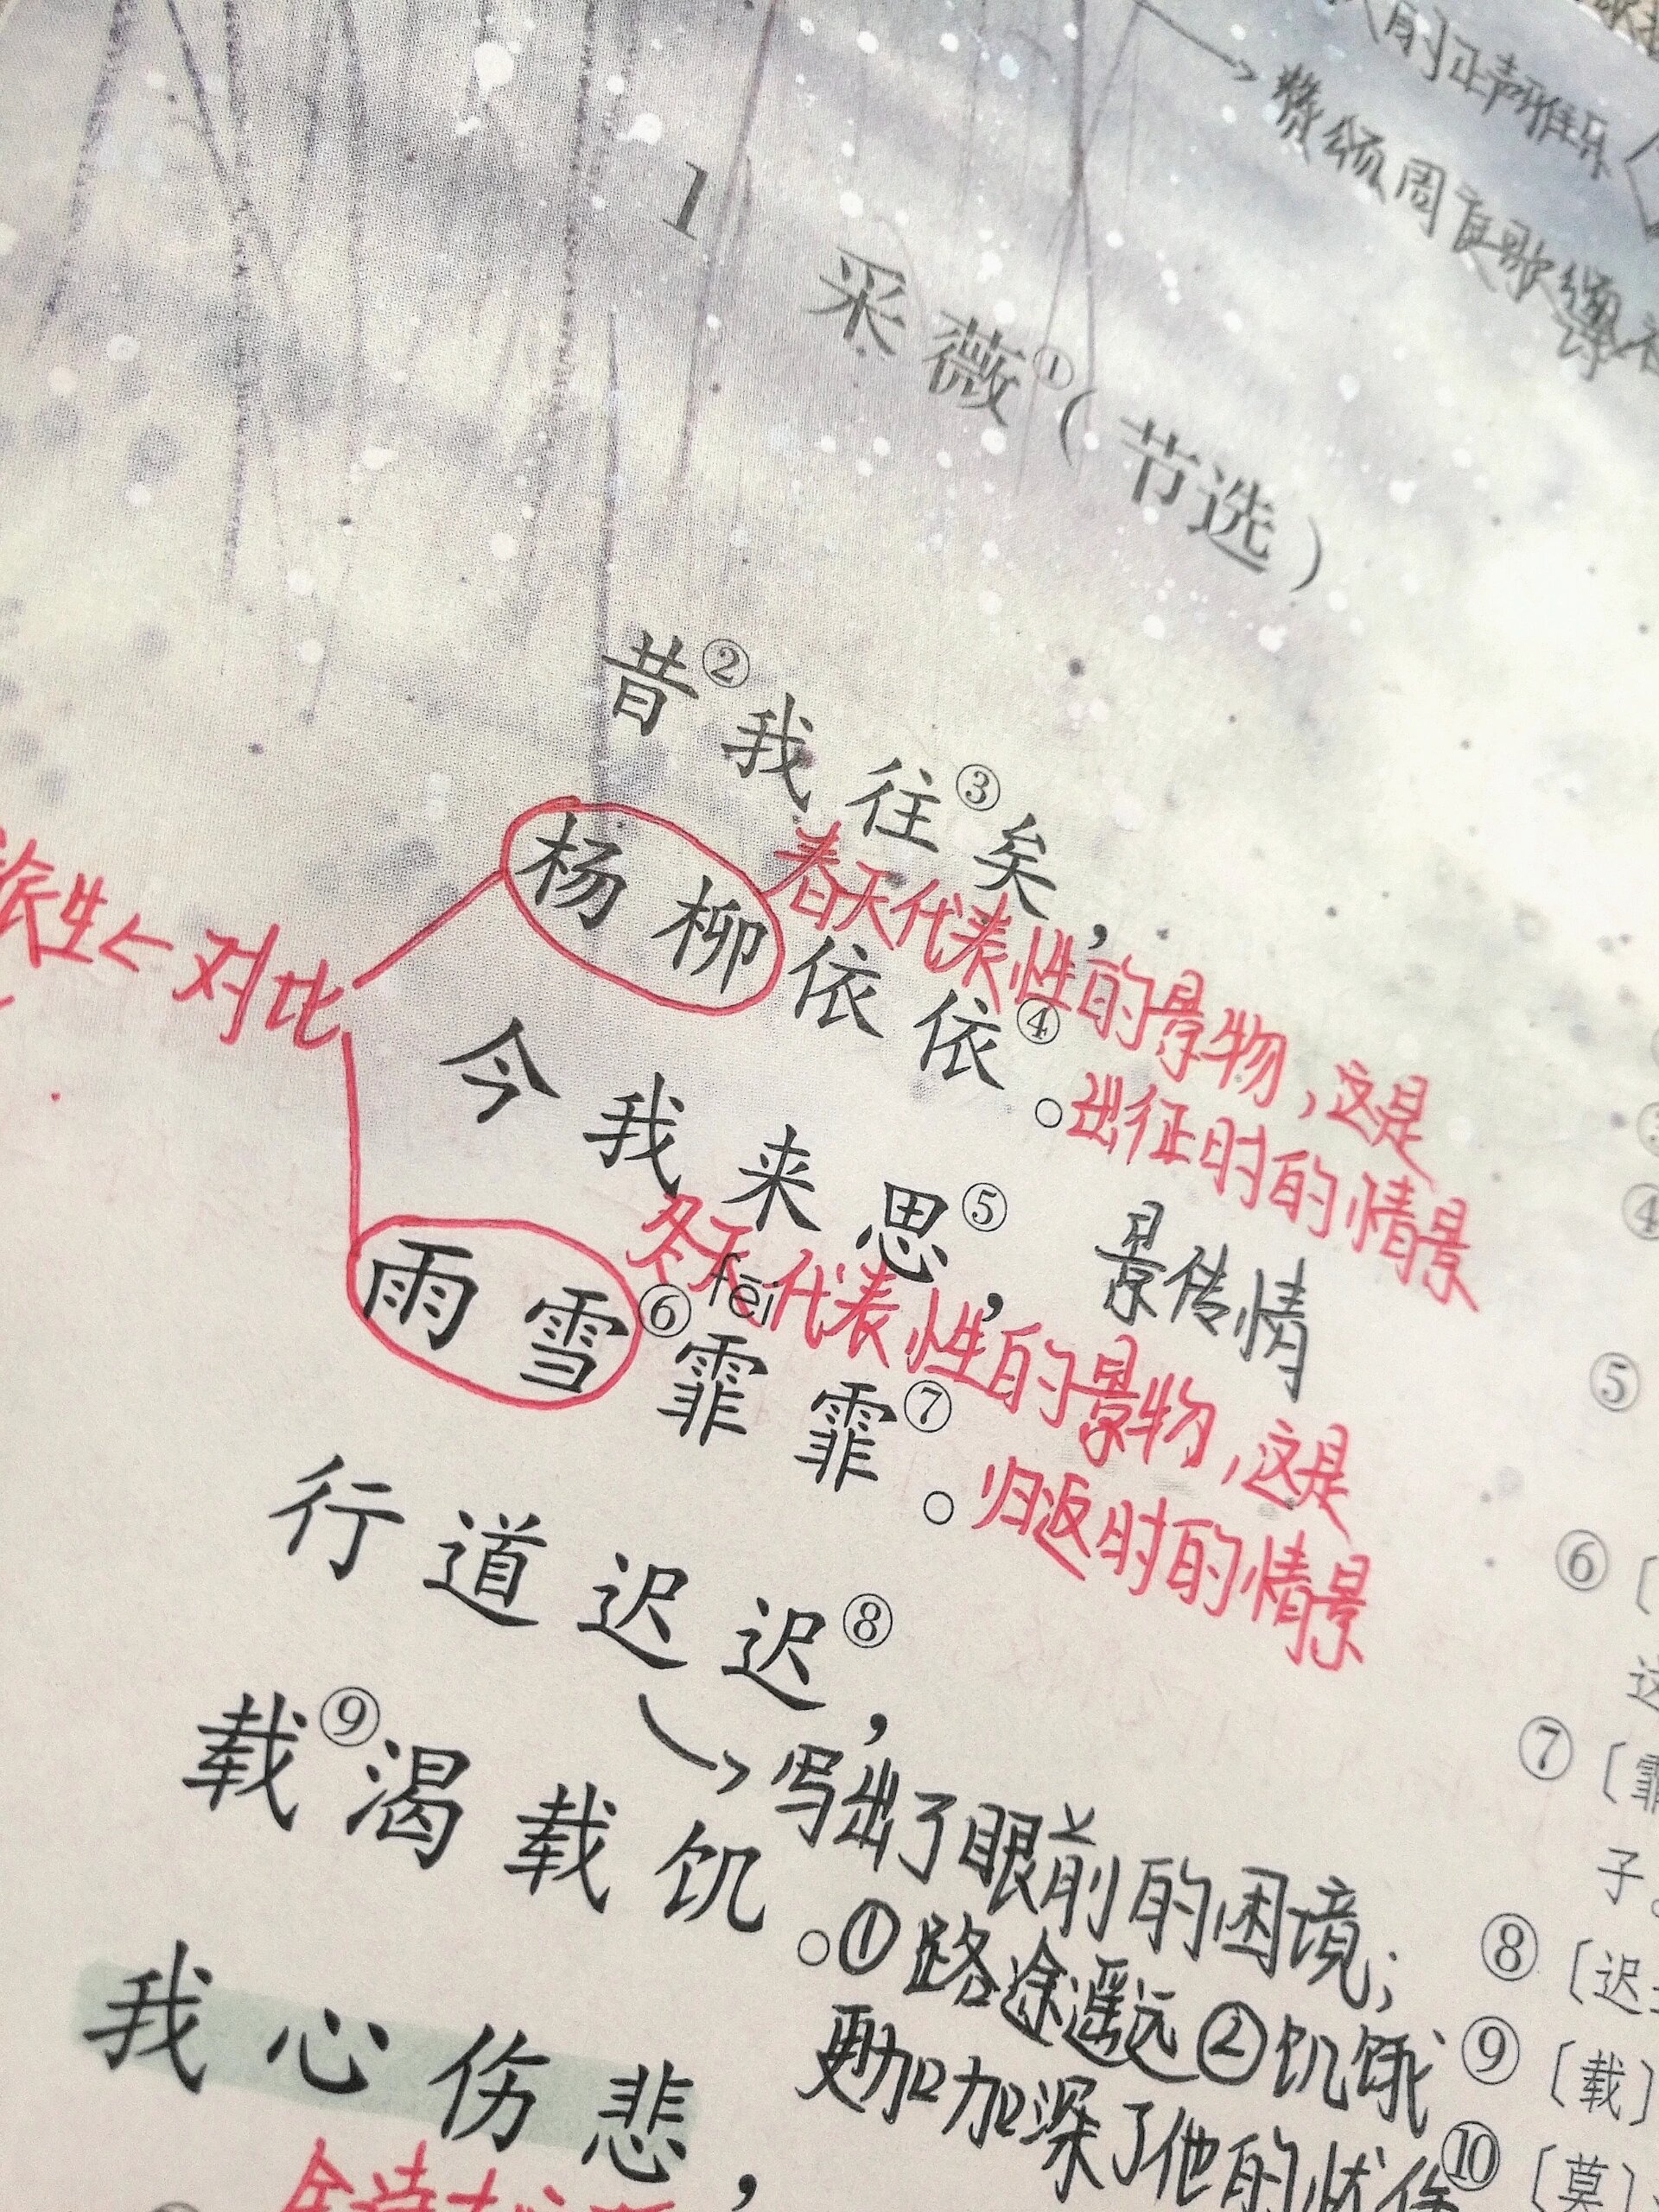 人的正声雅乐
赞颂周庭歌颂
1 采薇①（节选）
昔②我往③矣，
春天代表性的景物，这是
杨柳依依④。
出征时的情景
派生←对比
今我来思⑤，
景传情
冬天代表性的景物，这是
fēi
雨雪⑥霏霏⑦。
归返时的情景
行道迟迟⑧，
→写出了眼前的困境；
载⑨渴载饥。
①路途遥远②饥饿
更加加深了他的忧伤
我心伤悲，
④
⑤
⑥〔
⑦〔霏
子。
⑧〔迟
⑨〔载〕
⑩〔莫〕